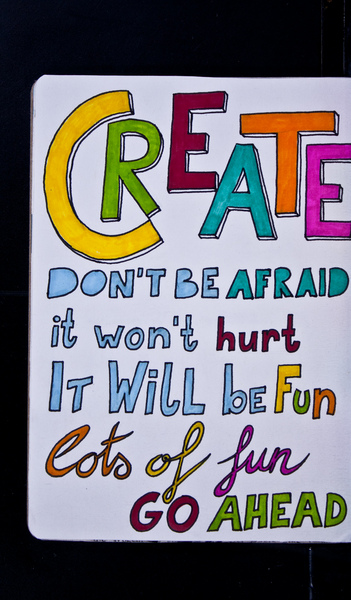 CREATE
DON'T BE AFRAID
it won't hurt
IT WiLL be Fun
lots of fun
GO AHEAD